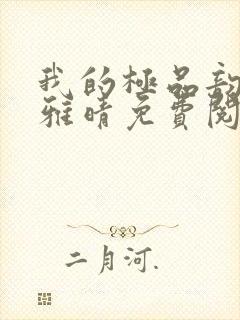 我的極品
雅晴免費閱
二月河.